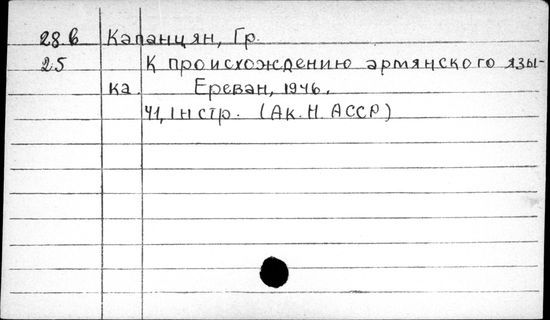 28.в Капанцян, Гр.
25 К происхождению армянского язы-
ка. Ереван, 1946.
41, Iн стр. (Ак. Н. АССР)